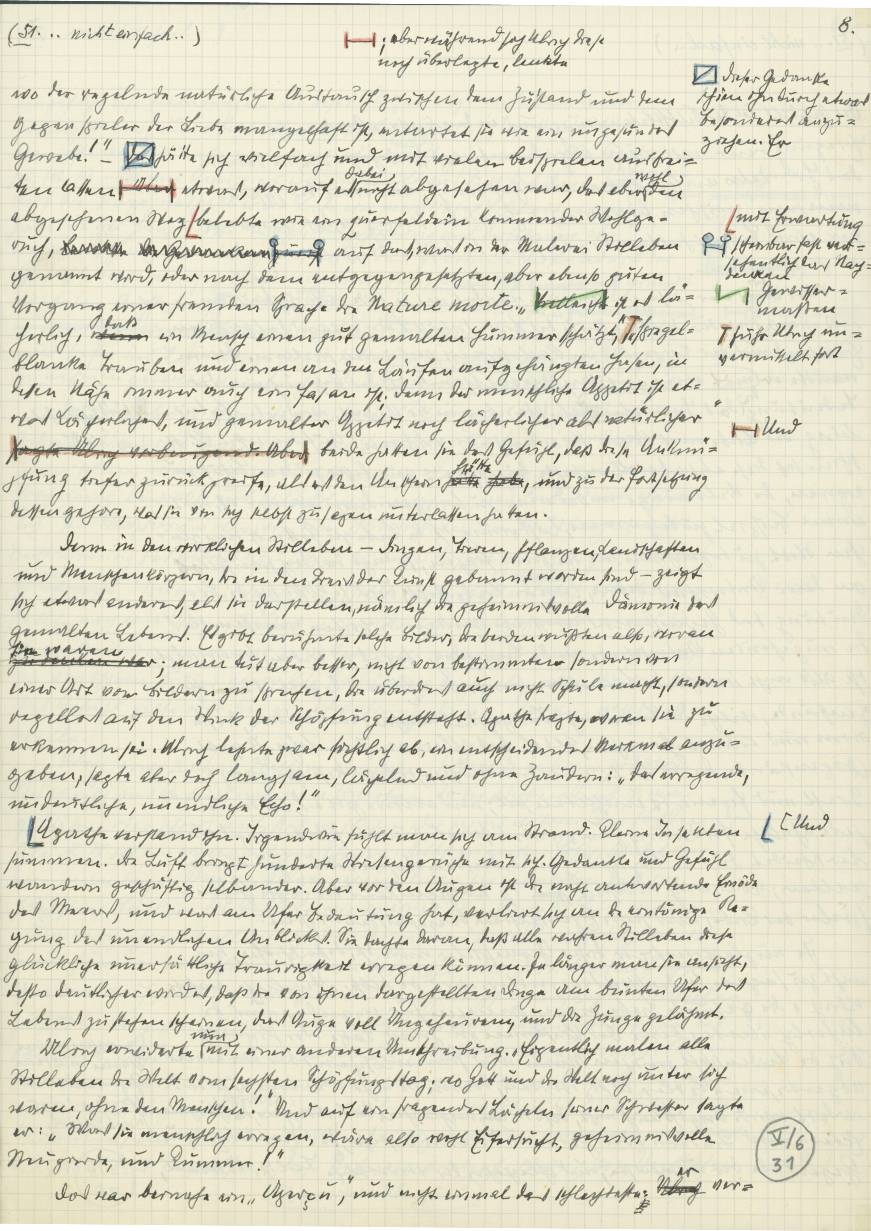 (51. .. nicht einfach..)
8.
; aber während sich Ulrich diese
noch überlegte, lenkte
wo der regelnde natürliche Austausch zwischen dem Zustand und dem
Gegenspieler der Liebe mangelhaft ist, entartet sie wie ein ungesundes
Gewebe!" – Das hätte sich vielfach und mit vielen Beispielen ausbrei=
ten lassen Aber etwas, worauf es dabei nicht abgesehen war, das aber wohl den
abgesehenen Weg belebte wie ein querfeldein kommender Wohlge=
ruch, auf das, was in der Malerei Stilleben
genannt wird, oder nach dem entgegengesetzten, aber ebenso guten
Vorgang einer fremden Sprache die Nature morte. „Vielleicht ist es lä=
cherlich, daß ein Mensch einen gut gemalten Hummer schätzt," spiegel=
blanke Trauben und einen an den Läufen aufgehängten Hasen, in
dessen Nähe immer auch ein Fasan ist; denn der menschliche Appetit ist et=
was Lächerliches, und gemalter Appetit noch lächerlicher als natürlicher"
sagte Ulrich vorbeugend. Aber beide hatten sie das Gefühl, daß diese Anknü=
pfung tiefer zurück greife, als es den Anschein hätte, und zu der Fortsetzung
dessen gehöre, was sie von sich selbst zu sagen unterlassen hatten.
Denn in den wirklichen Stilleben – Dingen, Tieren, Pflanzen, Landschaften
und Menschenkörpern, die in den Kreis der Kunst gebannt worden sind – zeigt
sich etwas anderes, als sie darstellen, nämlich die geheimnisvolle Dämonie des
gemalten Lebens. Es gibt berühmte solche Bilder, die beiden wußten also, woran
sie waren; man tut aber besser, nicht von bestimmten sondern von
einer Art von Bildern zu sprechen, die überdies auch nicht Schule macht, sondern
regellos auf den Wink der Schöpfung entsteht. Agathe fragte, woran sie zu
erkennen sei. Ulrich lehnte zwar sichtlich ab, ein entscheidendes Merkmal anzu=
geben, sagte aber doch langsam, lächelnd und ohne Zaudern: „Das erregende,
undeutliche, unendliche Echo!"
Agathe verstand ihn. Irgendwie fühlt man sich am Strand. Kleine Insekten
summen. Die Luft bringt hunderte Wiesengerüche mit sich. Gedanken und Gefühl
wandern geschäftig selbander. Aber vor den Augen ist die nicht antwortende Einöde
des Meers, und was am Ufer Bedeutung hat, verliert sich an die eintönige Re=
gung des unendlichen Anblicks. Sie dachte daran, daß alle wahren Stilleben diese
glückliche unersättliche Traurigkeit erregen können. Je länger man sie ansieht,
desto deutlicher wird es, daß die von ihnen dargestellten Dinge am bunten Ufer des
Lebens zu stehen scheinen, das Auge voll Ungeheurem, und die Zunge gelähmt.
Ulrich erwiderte nun mit einer anderen Umschreibung. „Eigentlich malen alle
Stilleben die Welt vom sechsten Schöpfungstag; wo Gott und die Welt noch unter sich
waren, ohne den Menschen!" Und auf ein fragendes Lächeln seiner Schwester sagte
er: „Was sie menschlich erregen, wäre also wohl Eifersucht, geheimnisvolle
Neugierde, und Kummer!"
Das war beinahe ein „Aperçu", und nicht einmal das schlechteste: er ver=
Dieser Gedanke
schien ihn durch etwas
Besonderes anzu=
ziehen. Er
mit Erwartung
Gewisser=
maßen
führte Ulrich un=
vermittelt fort
Und
[Und
V/6
31